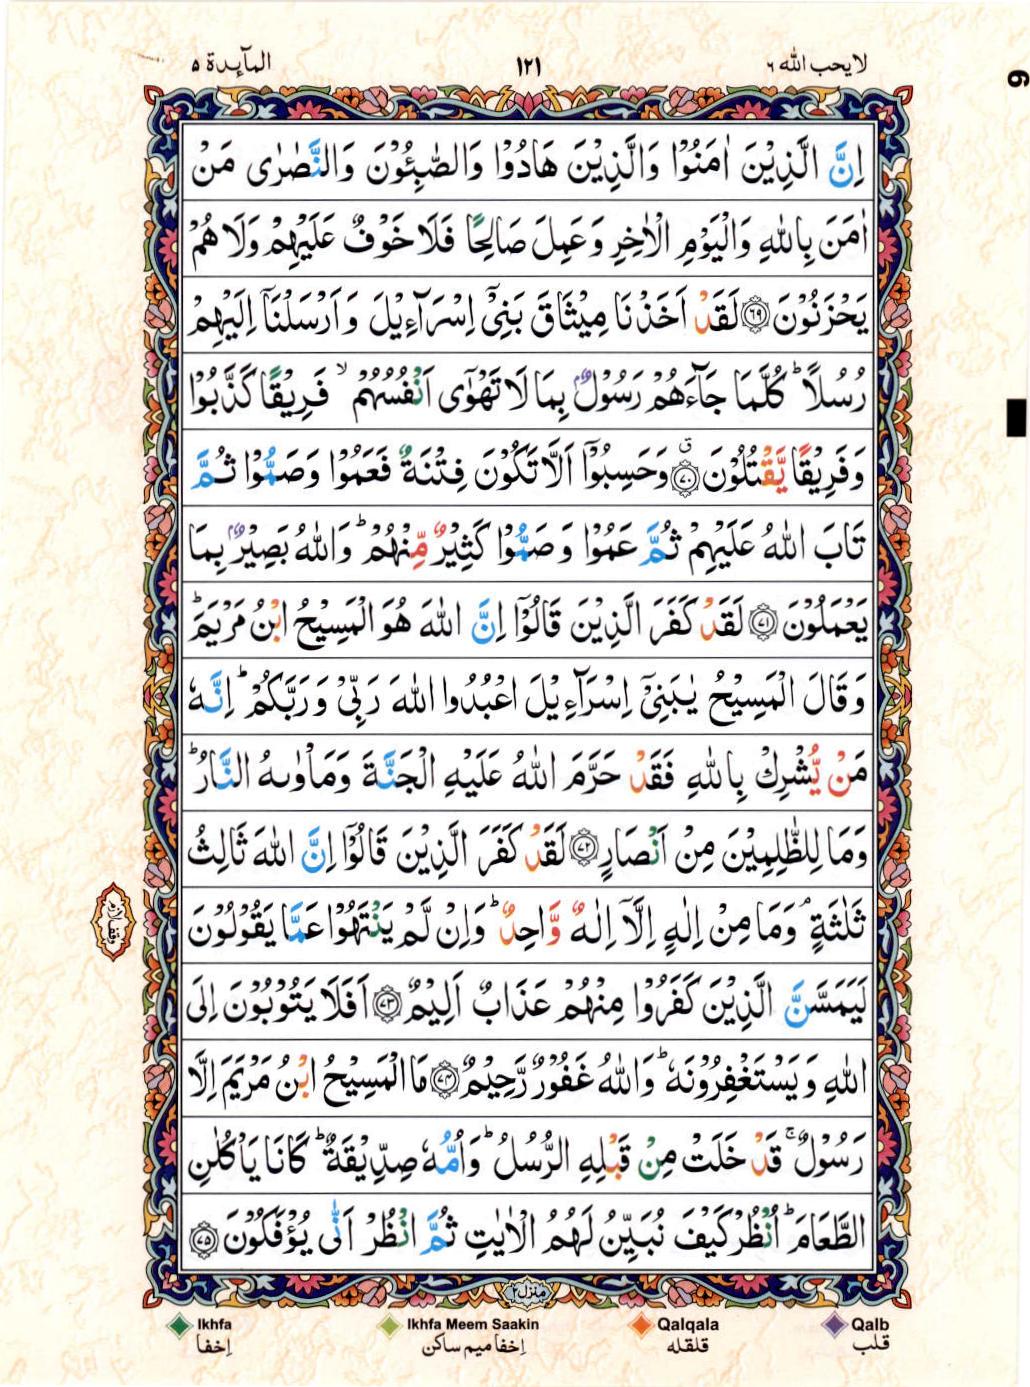 المآىِٕدة ۵
۱۲۱
لايحب الله ۶
6
اِنَّ الَّذِيْنَ اٰمَنُوْا وَالَّذِيْنَ هَادُوْا وَالصّٰبِـُٔوْنَ وَالنَّصٰرٰى مَنْ
اٰمَنَ بِاللّٰهِ وَالْيَوْمِ الْاٰخِرِ وَعَمِلَ صَالِحًا فَلَا خَوْفٌ عَلَيْهِمْ وَلَا هُمْ
يَحْزَنُوْنَ ۝۶۹ لَقَدْ اَخَذْنَا مِيْثَاقَ بَنِيْۤ اِسْرَآءِيْلَ وَاَرْسَلْنَاۤ اِلَيْهِمْ
رُسُلًا ؕ كُلَّمَا جَآءَهُمْ رَسُوْلٌۢ بِمَا لَا تَهْوٰۤى اَنْفُسُهُمْ ۙ فَرِيْقًا كَذَّبُوْا
وَفَرِيْقًا يَّقْتُلُوْنَ ۝۷۰ ۗ وَحَسِبُوْۤا اَلَّا تَكُوْنَ فِتْنَةٌ فَعَمُوْا وَصَمُّوْا ثُمَّ
تَابَ اللّٰهُ عَلَيْهِمْ ثُمَّ عَمُوْا وَصَمُّوْا كَثِيْرٌ مِّنْهُمْ ؕ وَاللّٰهُ بَصِيْرٌۢ بِمَا
يَعْمَلُوْنَ ۝۷۱ لَقَدْ كَفَرَ الَّذِيْنَ قَالُوْۤا اِنَّ اللّٰهَ هُوَ الْمَسِيْحُ ابْنُ مَرْيَمَ ؕ
وَقَالَ الْمَسِيْحُ يٰبَنِيْۤ اِسْرَآءِيْلَ اعْبُدُوا اللّٰهَ رَبِّيْ وَرَبَّكُمْ ؕ اِنَّهٗ
مَنْ يُّشْرِكْ بِاللّٰهِ فَقَدْ حَرَّمَ اللّٰهُ عَلَيْهِ الْجَنَّةَ وَمَاْوٰىهُ النَّارُ ؕ
وَمَا لِلظّٰلِمِيْنَ مِنْ اَنْصَارٍ ۝۷۲ لَقَدْ كَفَرَ الَّذِيْنَ قَالُوْۤا اِنَّ اللّٰهَ ثَالِثُ
ثَلٰثَةٍ ۘ وَمَا مِنْ اِلٰهٍ اِلَّاۤ اِلٰهٌ وَّاحِدٌ ؕ وَاِنْ لَّمْ يَنْتَهُوْا عَمَّا يَقُوْلُوْنَ
لَيَمَسَّنَّ الَّذِيْنَ كَفَرُوْا مِنْهُمْ عَذَابٌ اَلِيْمٌ ۝۷۳ اَفَلَا يَتُوْبُوْنَ اِلَى
اللّٰهِ وَيَسْتَغْفِرُوْنَهٗ ؕ وَاللّٰهُ غَفُوْرٌ رَّحِيْمٌ ۝۷۴ مَا الْمَسِيْحُ ابْنُ مَرْيَمَ اِلَّا
رَسُوْلٌ ۚ قَدْ خَلَتْ مِنْ قَبْلِهِ الرُّسُلُ ؕ وَاُمُّهٗ صِدِّيْقَةٌ ؕ كَانَا يَاْكُلٰنِ
الطَّعَامَ ؕ اُنْظُرْ كَيْفَ نُبَيِّنُ لَهُمُ الْاٰيٰتِ ثُمَّ انْظُرْ اَنّٰى يُؤْفَكُوْنَ ۝۷۵
وقف لازم
منزل ۲
Ikhfa
إخفا
Ikhfa Meem Saakin
إخفا ميم ساكن
Qalqala
قلقله
Qalb
قلب